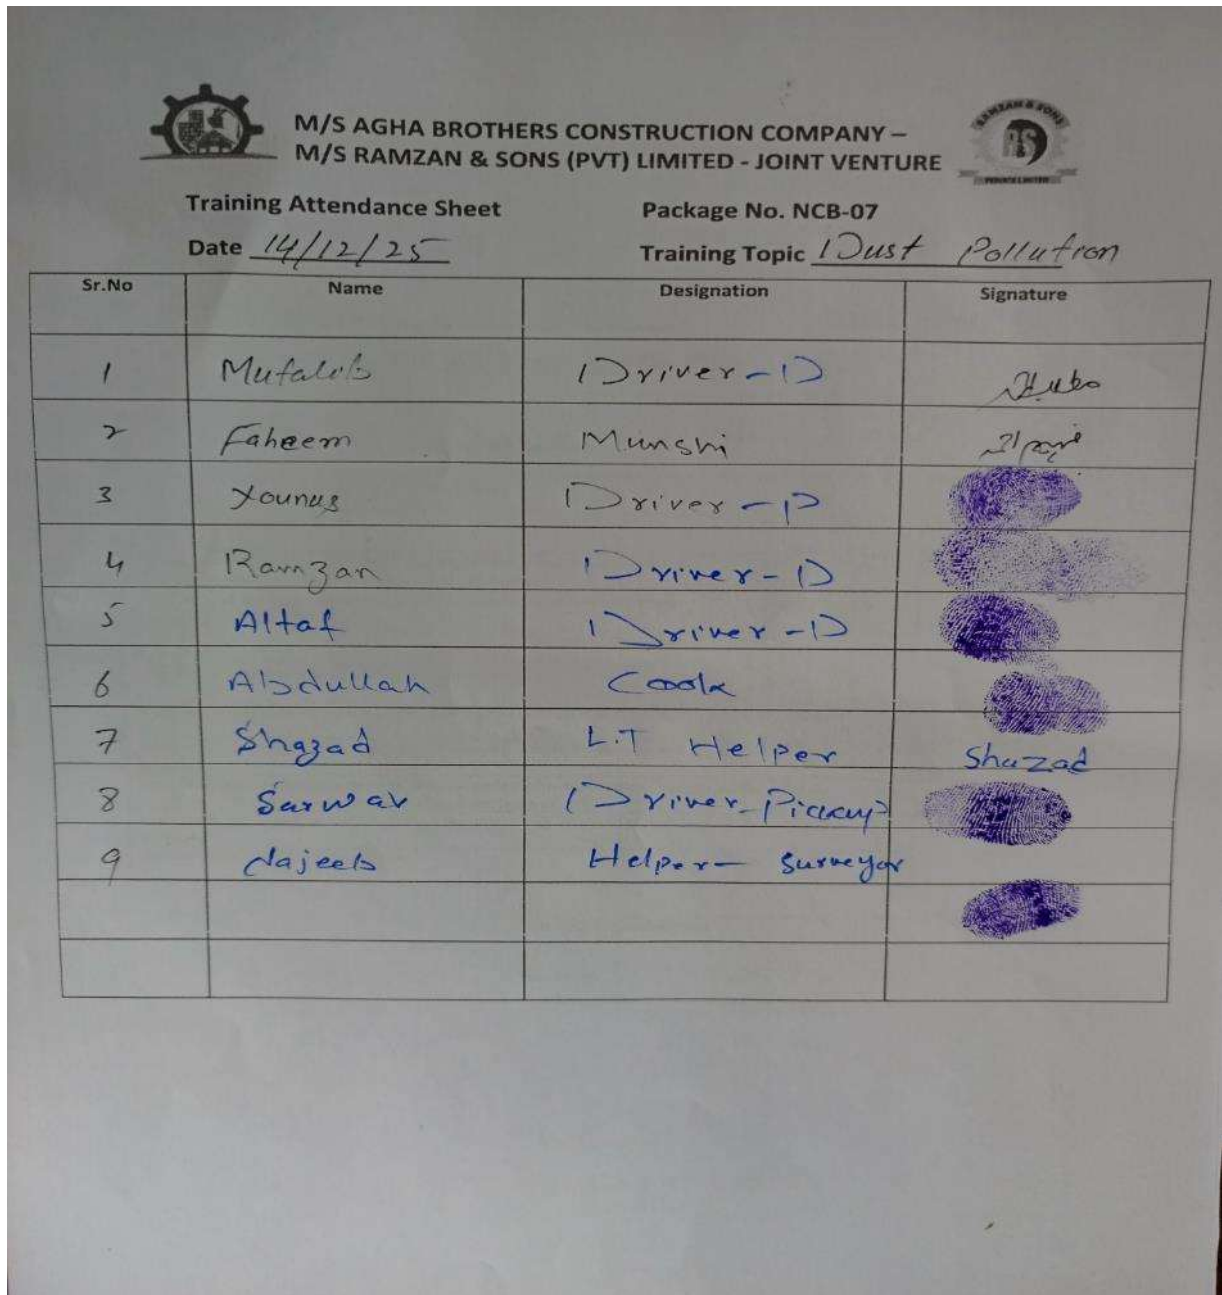 M/S AGHA BROTHERS CONSTRUCTION COMPANY –
M/S RAMZAN & SONS (PVT) LIMITED - JOINT VENTURE
RAMZAN & SONS
R&S
PRIVATE LIMITED
Training Attendance Sheet Package No. NCB-07
Date 14/12/25 Training Topic Dust Pollution
Sr.No Name Designation Signature
1 Mutalib Driver-D
2 Faheem Munshi
3 Younus Driver-D
4 Ramzan Driver-D
5 Altaf Driver-D
6 Abdullah Cook
7 Shazad L.T Helper Shazad
8 Sarwar Driver-Pickup
9 Najeeb Helper- Surveyor